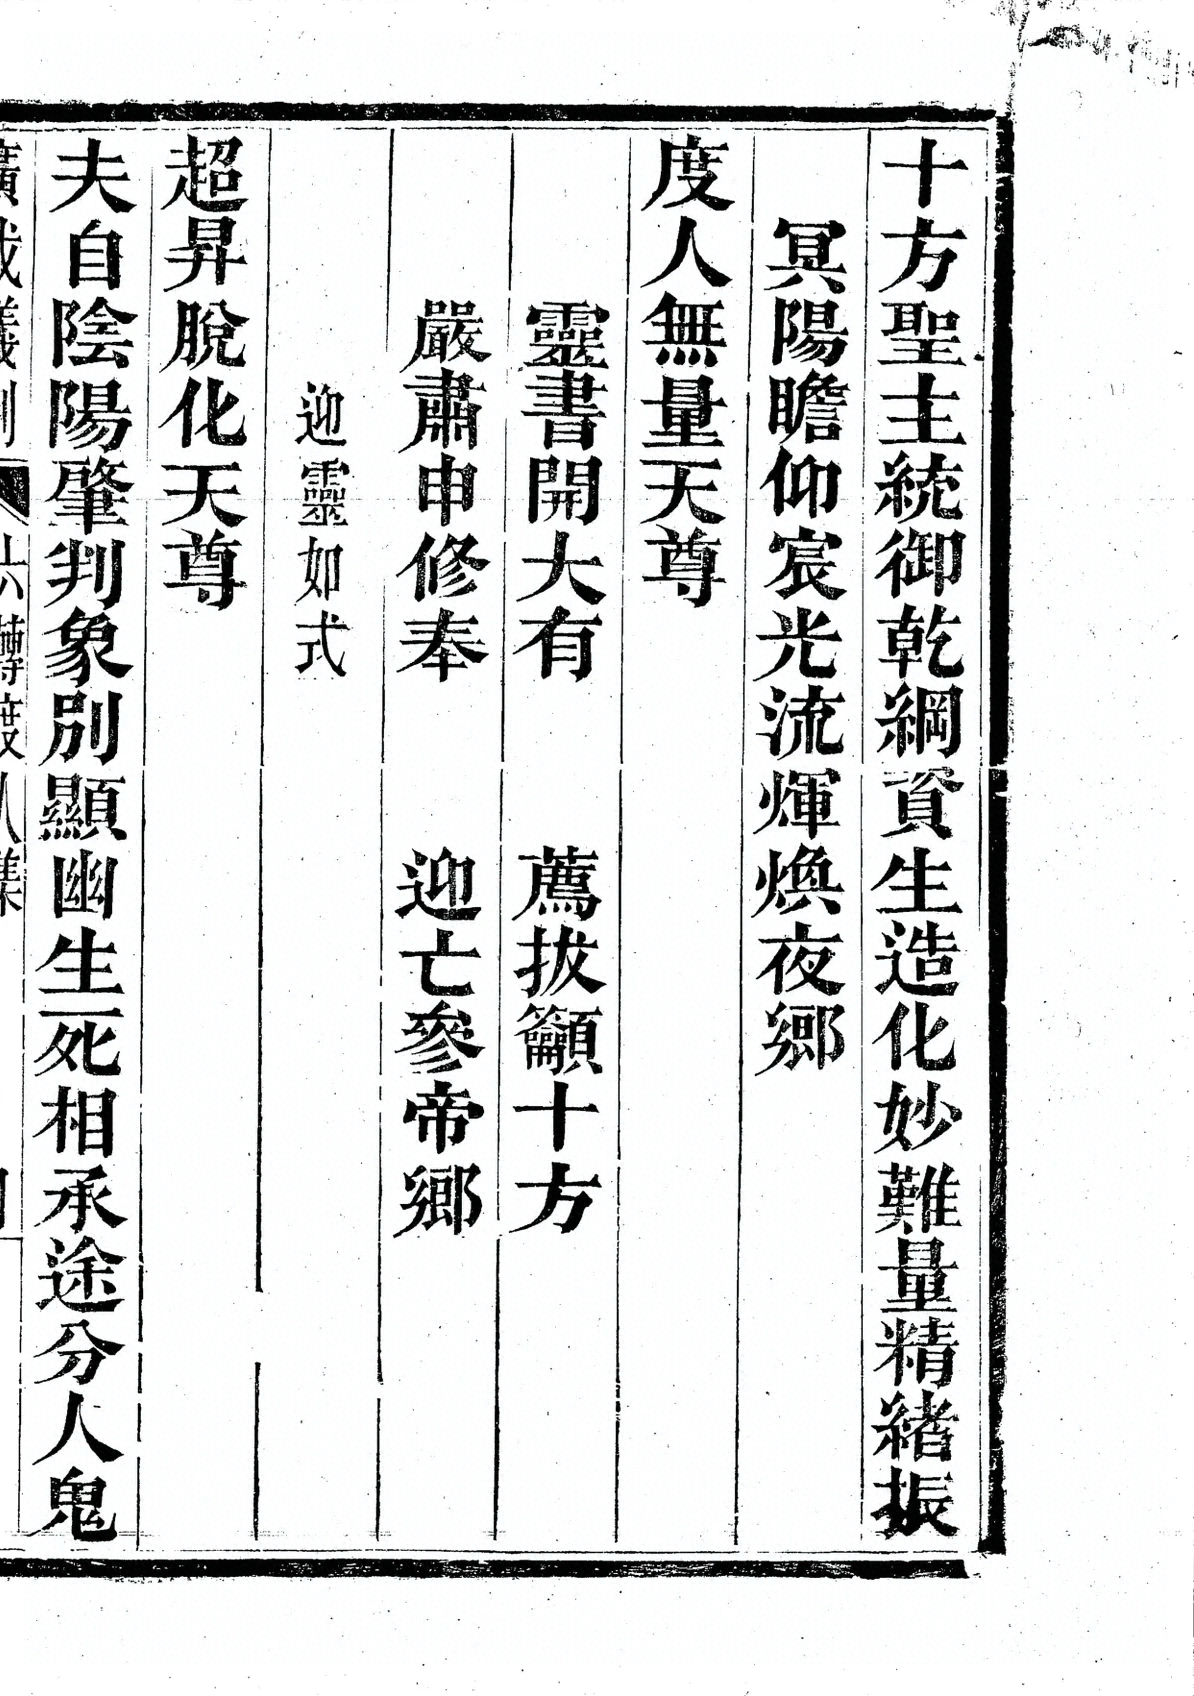 十方聖主統御乾綱資生造化妙難量精緒振
冥陽瞻仰宸光流輝煥夜鄉
度人無量天尊
靈書開大有　薦拔籲十方
嚴肅申修奉　迎亡參帝鄉
迎靈如式
超昇脫化天尊
夫自陰陽肇判象別顯幽生死相承途分人鬼